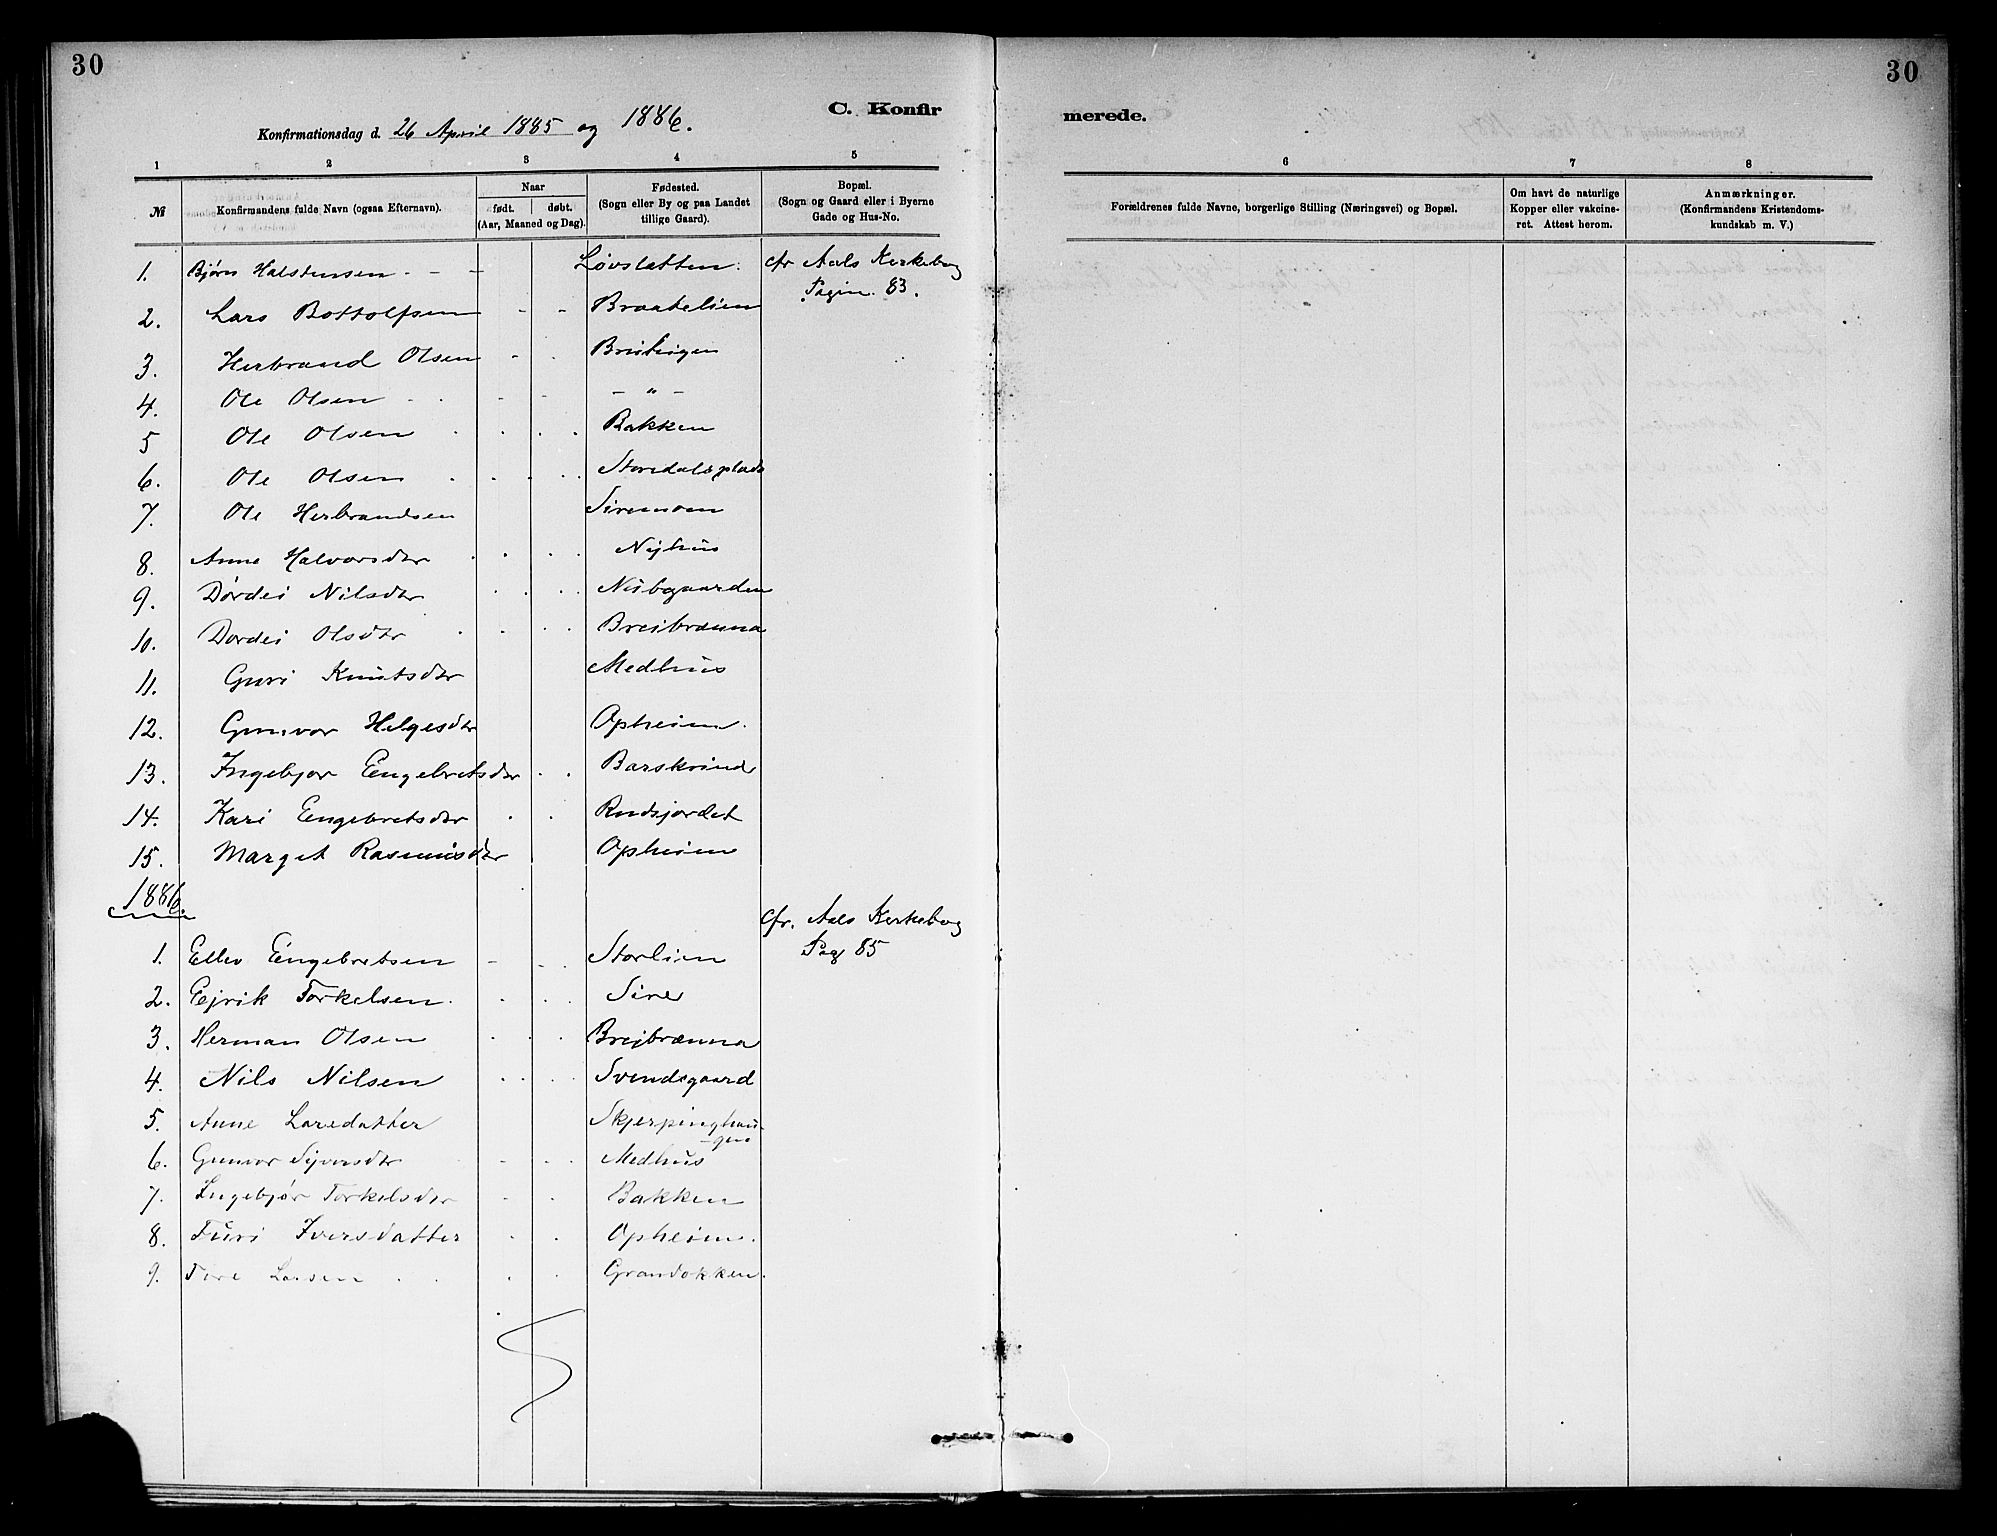 30
30
C. Konfir
merede.
Konfirmationsdag d. 26 April 1885 og 1886.
1 2 3 4 5 6 7 8
№ Konfirmandens fulde Navn (ogsaa Efternavn). Naar født. døbt. (Aar, Maaned og Dag). Fødested. (Sogn eller By og paa Landet tillige Gaard). Bopæl. (Sogn og Gaard eller i Byerne Gade og Hus-No.
Forældrenes fulde Navne, borgerlige Stilling (Næringsvei) og Bopæl. Om havt de naturlige Kopper eller vakcineret. Attest herom. Anmærkninger. (Konfirmandens Kristendomskundskab m. V.)
1. Bjørn Halstensen - - - Løvslatten. cfr Aals Kirkebog
Pagin. 83.
2. Lars Bottolfsen - - Braatelien
3. Herbrand Olsen - . Bruhigen
4. Ole Olsen . . - - - " -
5 Ole Olsen . . . . Bakken
6. Ole Olsen . . . . Storedalsplads
7. Ole Herbrandsen Siremoen
8. Anne Halvorsdtr . . . . Nyhus
9. Dørdei Nilsdtr . . . . Nubgaarden
10. Dordei Olsdtr . . . . Breibrænna
11. Guri Knutsdtr Medhus
12. Gunvor Helgesdtr Opheim.
13. Ingebjor Engebretsdtr . . Barskrind
14. Kari Engebretsdtr . . Rudsjordet
15. Marget Rasmusdtr Opheim
1886.
cfr. Aals Kirkebog
1. Ellev Engebretsen - - . Storlien Pag 85
2. Eejrik Torkelsen . . . . Sire
3. Herman Olsen . . . Brejbrænna
4. Nils Nilsen . . . . Svendsgaard
5. Anne Larsdatter Skjerpinghau-
gen
6. Gunvor Syversdtr - - . Medhus
7. Ingebjør Torkelsdtr - . Bakken
8. Turi Iversdatter . . Opheim.
9. Tore Larsen . . . . Grandokken.